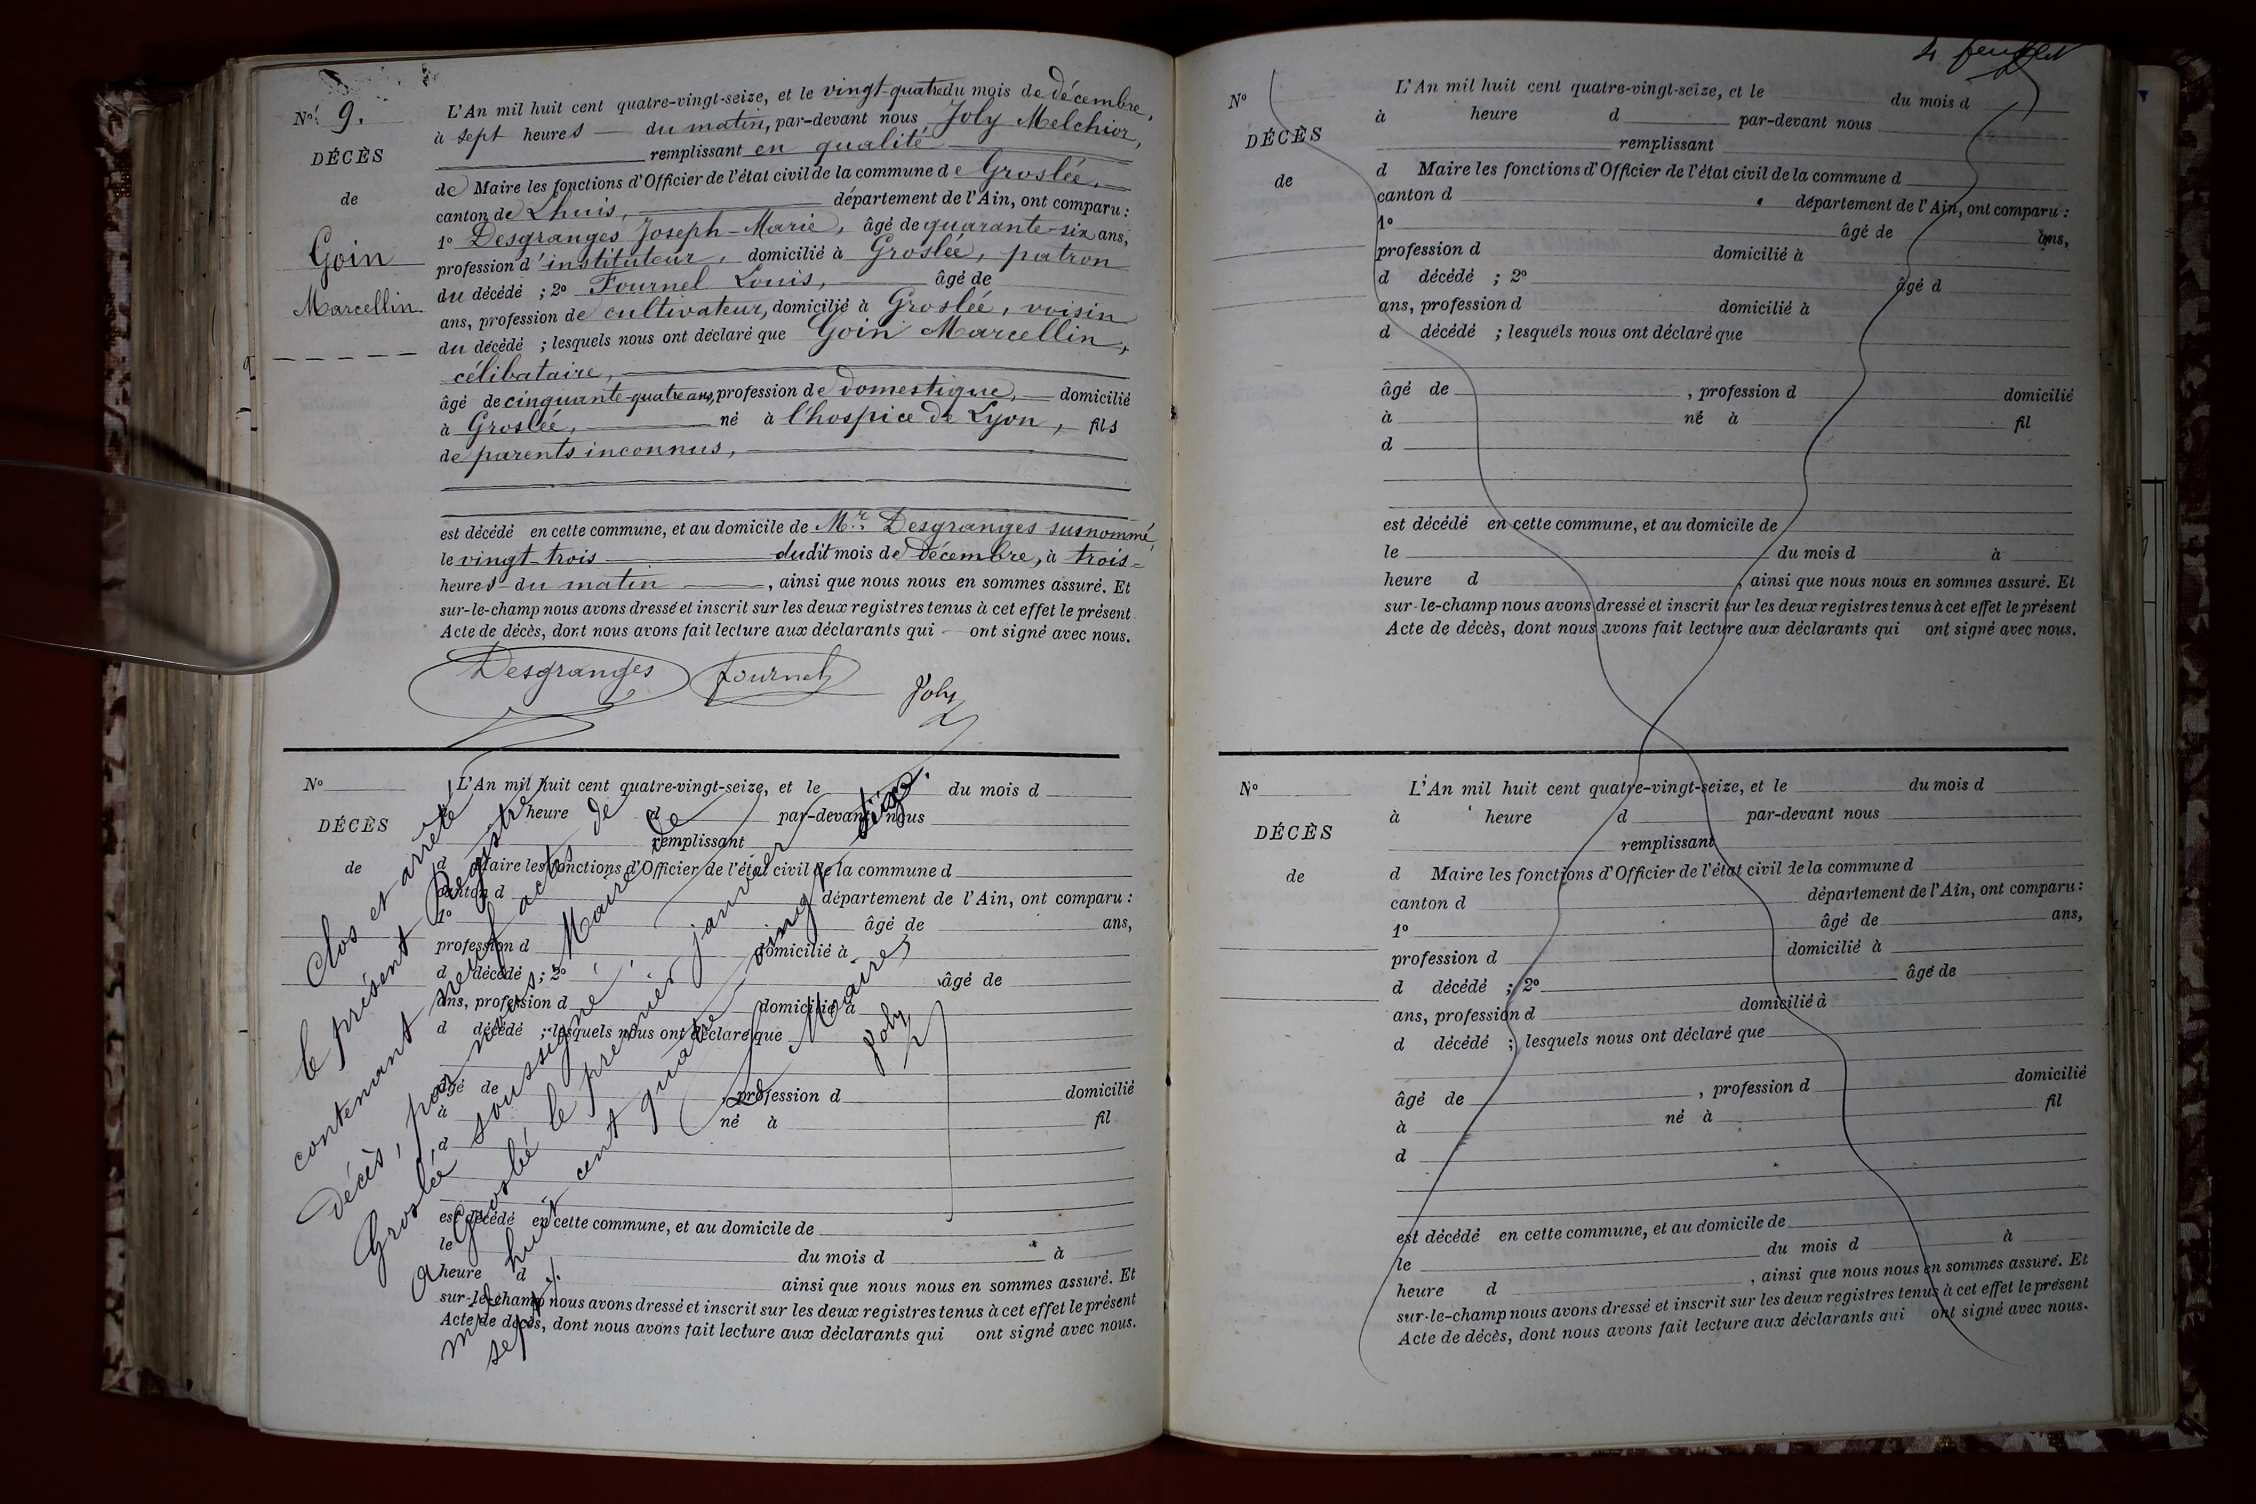 Nº 9.
DÉCÈS
de
Goin
Marcellin
L'An mil huit cent quatre-vingt-seize, et le vingt-quatre du mois de décembre,
à sept heures du matin, par-devant nous Joly Melchior,
remplissant en qualité
de Maire les fonctions d'Officier de l'état civil de la commune de Groslée,
canton de Lhuis, département de l'Ain, ont comparu :
1º Desgranges Joseph-Marie, âgé de quarante-six ans,
profession d'instituteur, domicilié à Groslée, patron
du décédé ; 2º Fournel Louis, âgé de
ans, profession de cultivateur, domicilié à Groslée, voisin
du décédé ; lesquels nous ont déclaré que Goin Marcellin,
célibataire,
âgé de cinquante-quatre ans, profession de domestique, domicilié
à Groslée, né à l'hospice de Lyon, fils
de parents inconnus,
est décédé en cette commune, et au domicile de Mr. Desgranges susnommé,
le vingt-trois dudit mois de décembre, à trois
heures du matin, ainsi que nous nous en sommes assuré. Et
sur-le-champ nous avons dressé et inscrit sur les deux registres tenus à cet effet le présent
Acte de décès, dont nous avons fait lecture aux déclarants qui ont signé avec nous.
Desgranges Fournel Joly
Nº
DÉCÈS
de
L'An mil huit cent quatre-vingt-seize, et le du mois d
à heure d par-devant nous
remplissant
d Maire les fonctions d'Officier de l'état civil de la commune d
canton d département de l'Ain, ont comparu :
1º âgé de ans,
profession d domicilié à
d décédé ; 2º âgé de
ans, profession d domicilié à
d décédé ; lesquels nous ont déclaré que
âgé de profession d domicilié
à né à fil
d
est décédé en cette commune, et au domicile de
le du mois d à
heure d ainsi que nous nous en sommes assuré. Et
sur-le-champ nous avons dressé et inscrit sur les deux registres tenus à cet effet le présent
Acte de décès, dont nous avons fait lecture aux déclarants qui ont signé avec nous.
Clos et arrêté
le présent Registre
contenant neuf actes de
décès, par nous, Maire de
Groslée soussigné,
à Groslée le premier janvier
mil huit cent quatre vingt dix
sept.
Le Maire,
Joly
4 feuillet
Nº
DÉCÈS
de
L'An mil huit cent quatre-vingt-seize, et le du mois d
à heure d par-devant nous
remplissant
d Maire les fonctions d'Officier de l'état civil de la commune d
canton d département de l'Ain, ont comparu :
1º âgé de ans,
profession d domicilié à
d décédé ; 2º âgé d
ans, profession d domicilié à
d décédé ; lesquels nous ont déclaré que
âgé de , profession d domicilié
à né à fil
d
est décédé en cette commune, et au domicile de
le du mois d à
heure d , ainsi que nous nous en sommes assuré. Et
sur-le-champ nous avons dressé et inscrit sur les deux registres tenus à cet effet le présent
Acte de décès, dont nous avons fait lecture aux déclarants qui ont signé avec nous.
Nº
DÉCÈS
de
L'An mil huit cent quatre-vingt-seize, et le du mois d
à heure d par-devant nous
remplissant
d Maire les fonctions d'Officier de l'état civil de la commune d
canton d département de l'Ain, ont comparu :
1º âgé de ans,
profession d domicilié à
d décédé ; 2º âgé de
ans, profession d domicilié à
d décédé ; lesquels nous ont déclaré que
âgé de , profession d domicilié
à né à fil
d
est décédé en cette commune, et au domicile de
le du mois d à
heure d , ainsi que nous nous en sommes assuré. Et
sur-le-champ nous avons dressé et inscrit sur les deux registres tenus à cet effet le présent
Acte de décès, dont nous avons fait lecture aux déclarants qui ont signé avec nous.